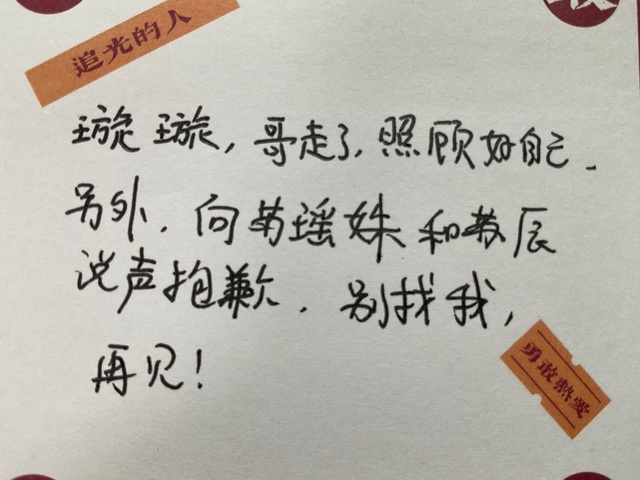 追光的人
璇璇，哥走了，照顾好自己.
另外，向苏瑶妹和苏辰
说声抱歉，别找我，
再见！
勇敢熱愛